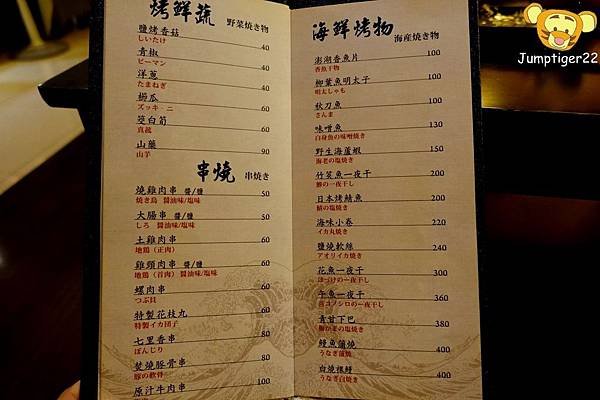 烤鮮蔬 野菜焼き物
鹽烤香菇 40
しいたけ
青椒 40
ピーマン
洋蔥 40
たまねぎ
櫛瓜 60
ズッキ-ニ
筊白筍 60
真菰
山藥 90
山芋
串燒 串焼き
燒雞肉串 醬/鹽 50
焼き鳥 醤油味/塩味
大腸串 醬/鹽 50
しろ 醤油味/塩味
土雞肉串 60
地鶏(正肉)
雞頸肉串 醬/鹽 60
地鶏(首肉) 醤油味/塩味
螺肉串 60
つぶ貝
特製花枝丸 60
特製イカ団子
七里香串 80
ぼんじり
焚燒豚骨串 80
豚の軟骨
原汁牛肉串 100
海鮮烤物 海産焼き物
澎湖香魚片 100
香魚干物
柳葉魚明太子 100
明太しゃも
秋刀魚 100
さんま
味噌魚 130
白身魚の味噌焼き
野生海蘆蝦 150
海老の塩焼き
竹筴魚一夜干 200
鯵の一夜干し
日本烤鯖魚 200
鯖の塩焼き
海味小卷 220
イカ丸焼き
鹽燒軟絲 240
アオリイカ焼き
花魚一夜干 300
ほっけの一夜干し
午魚一夜干 360
コノシロの一夜干し
青甘下巴 380
鰻魚蒲燒 400
うなぎ蒲焼
白燒鰻 400
うなぎ白焼き
Jumptiger22